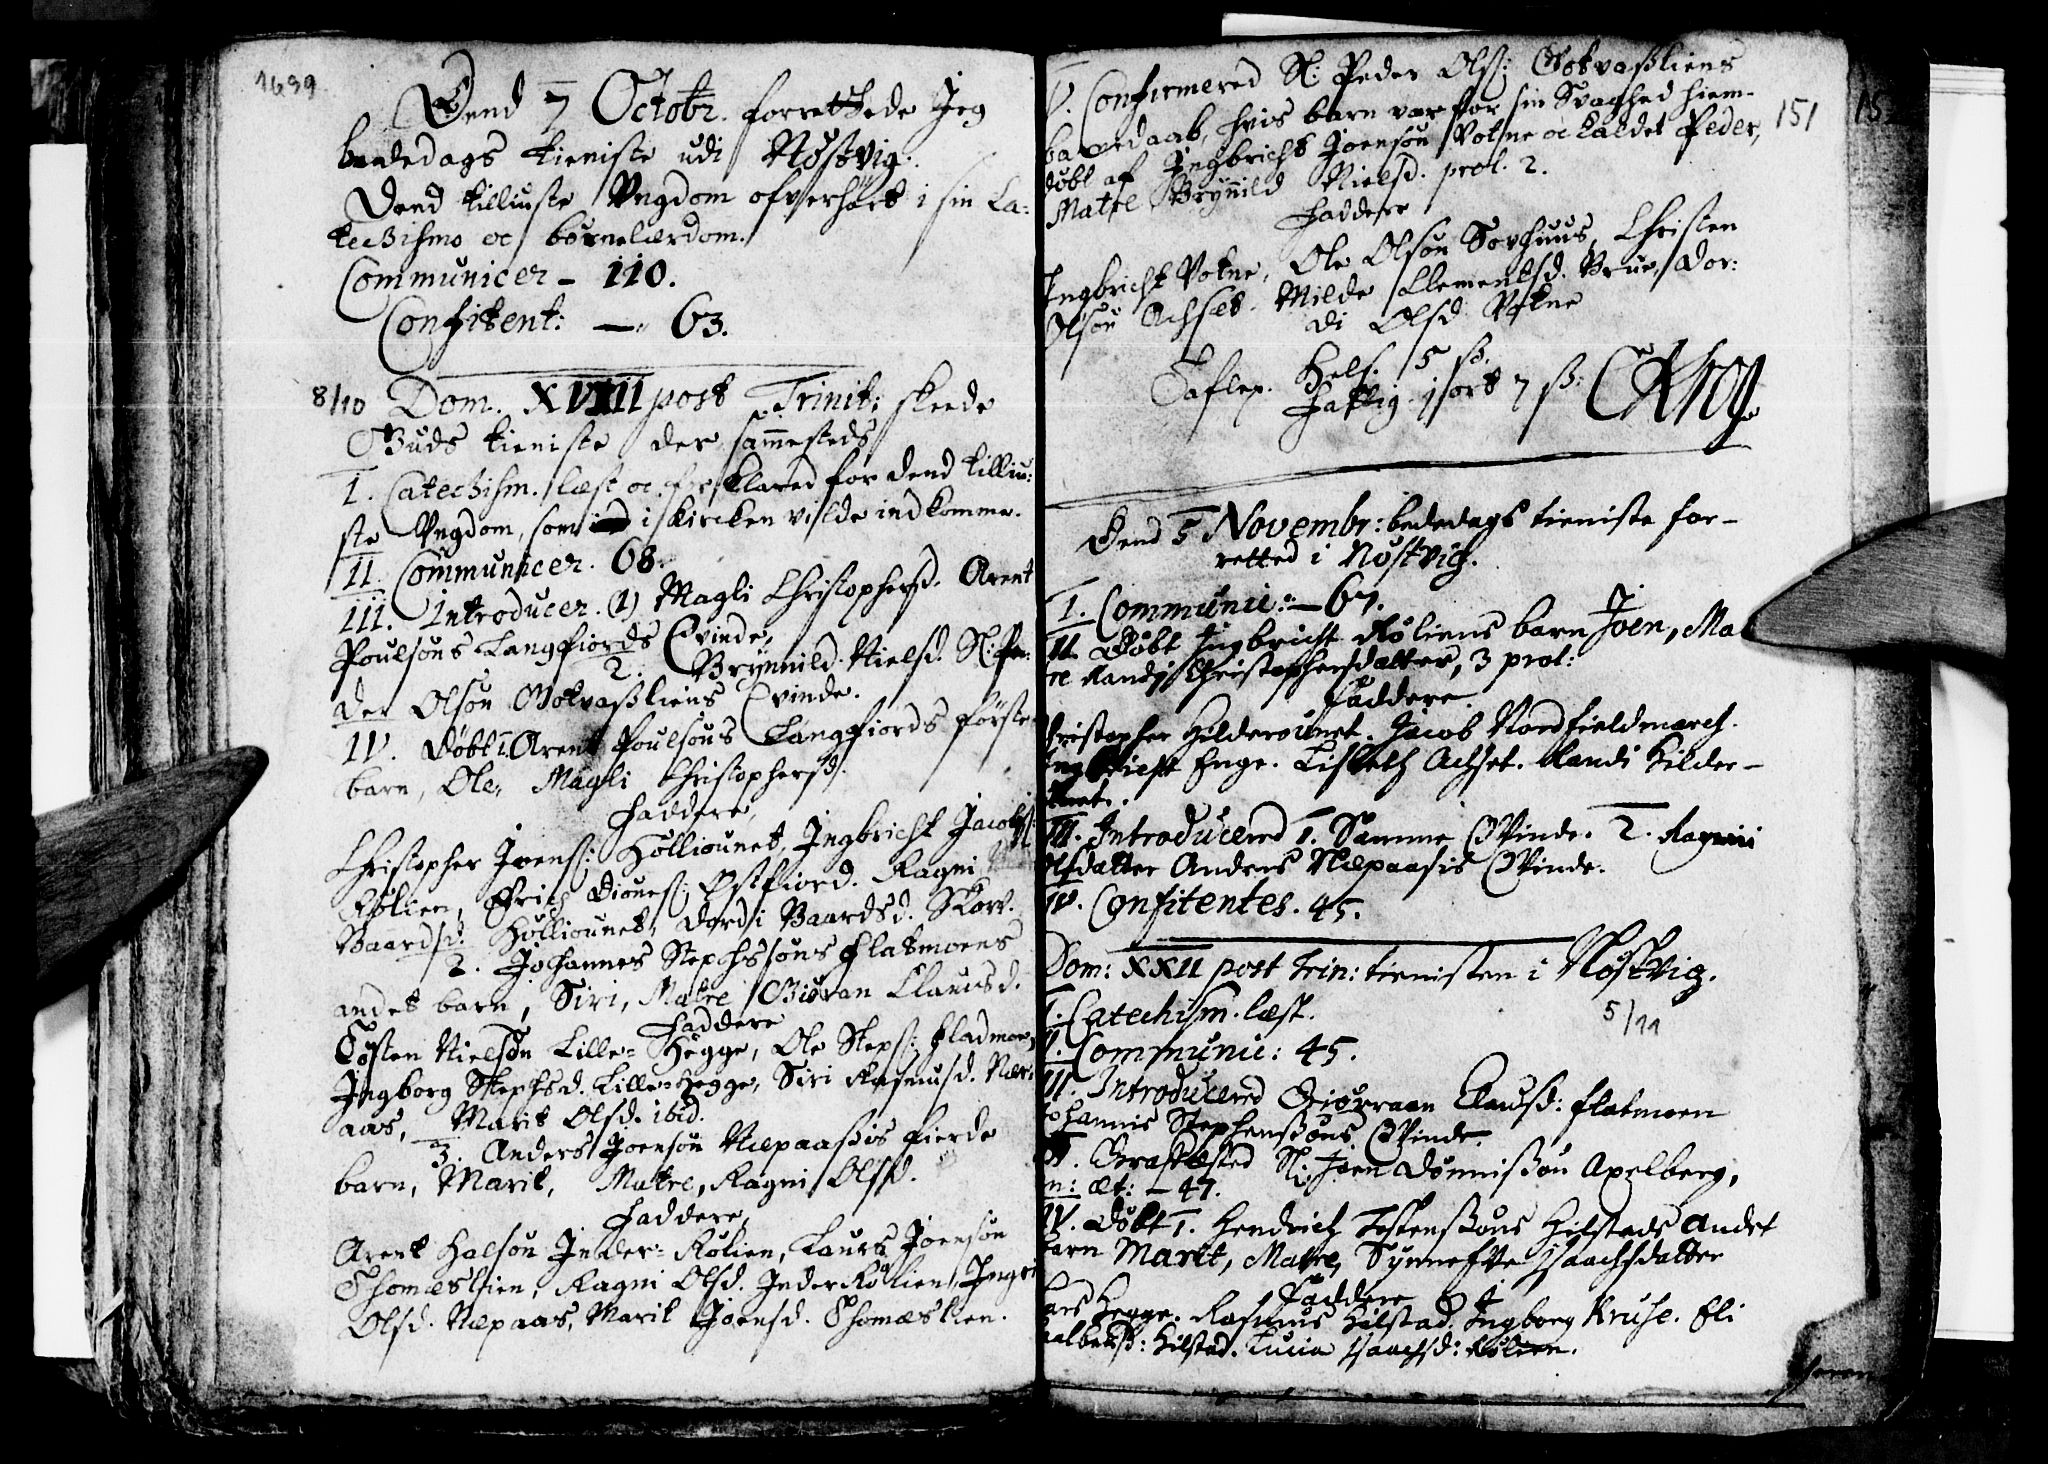 1699
Dend 7 Octobr. forrettede Jeg
bededags tieniste udi Nøstvig.
Dend tilliuste Ungdom ofverhørt i sin Ca-
techismo oc børnelærdom.
Communicer - 110.
Confitent: — 63.
8/10 Dom. XVIII post Trinit: skeede
Guds tieniste der sammesteds
I. Catechism. læst oc forklared for dend tilliu-
ste Ungdom, som i kircken vilde indkomme.
II. Communicer. 68.
III. Introducer. (1) Magli Christophersd. Arent
Poulsøns Langfiords Qvinde,
2. Brynnild Nielsd. Sl: Pe-
der Olsøn Gotvasliens Qvinde.
IV. Døbt 1. Arent Poulsøns Langfiords første
barn, Ole, Magli Christophersd.
Faddere,
Christopher Joens: Holliounet, Ingbricht Jacobs:
Rølien, Erich Diones: Østfiord. Ragni
Baardsd. Holliounet, Dordi Baardsd. Skorv.
2. Johannes Stephssøns Flatmoens
andet barn, Siri, Matre Giøran Clausd.
Faddere
Tosten Nielsøn Lille-Hegge, Ole Steps: Fladmoe,
Ingborg Stephsd. Lille-Hegge, Siri Rasmusd. Nær-
aas, Marit Olsd. ibid.
3. Anders Joensøn Næpaasis fierde
barn, Marit, Matre, Ragni Olsd.
Faddere,
Arent Halsøn Inder-Rølien, Laurs Joensøn
Thomeslien, Ragni Olsd. Inder Rølien, Ingri
Olsd. Næpaas, Marit Joensd. Thomeslien.
151
V. Confirmered Sl: Peder Ols: Gotvasliens
barnedaab, hvis barn var for sin Svaghed hiem-
døbt af Ingbricht Joensøn Votne oc kaldet Peder,
Matre Brynnild Nielsd. prol. 2.
Faddere
Ingbricht Votne, Ole Olsøn Sorhuus, Christen
Olsøn Achset. Milde Clementsd. Brue, Dor-
di Olsd Votne
Taflep. Hels. 5 sk.
Fattig. 1 ort 7 sk:
Dend 5 Novembr: bededags tieniste for-
retted i Nøstvig.
I. Communic: — 67.
II. Døbt Ingbricht Røliens barn Joen, Ma-
re Randi Christophersdatter, 3 prol:
Faddere.
Christopher Hilderounet. Jacob Nordfieldmarck.
Ingbricht Enge. Lisbeth Achset. Randi Hilder-
ounet.
III. Introducered 1. Samme Qvinde. 2. Ragnni
Olsdatter Anders Næpaasis Qvinde.
IV. Confitentes. 45.
Dom: XXII post Trin: tienisten i Nøstvig.
5/11
I. Catechism. læst.
II. Communic: 45.
III. Introducered Giørraan Clausd: Flatmoen
Johannis Stephenssøns Qvinde.
IV. Græsfæsted Sl: Joen Dønnissøn Apelberg,
an: æt: — 47.
IV. Døbt 1. Hendrich Tostenssøns Hilstads Andet
barn Marit, Matre, Synnefve Isaachsdatter
Faddere
Lars Hegge. Rasmus Hilstad. Ingborg Kruse. Eli
Hilstad. Lucia Isaachsd: Rølien.